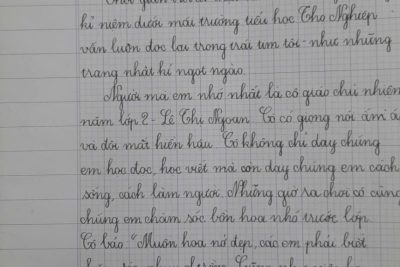 kỉ niệm dưới mái trường tiểu học Thọ Nghiệp
vẫn luôn đọc lại trong trái tim tôi - như những
trang nhật kí ngọt ngào.
Người mà em nhớ nhất là cô giáo chủ nhiệm
năm lớp 2 - Lê Thị Ngoan. Cô có giọng nói ấm á
và đôi mắt hiền hậu. Cô không chỉ dạy chúng
em học đọc, học viết mà còn dạy chúng em cách
sống, cách làm người. Những giờ ra chơi cô cùng
chúng em chăm sóc bồn hoa nhỏ trước lớp.
Cô bảo: "Muốn hoa nở đẹp, các em phải biết